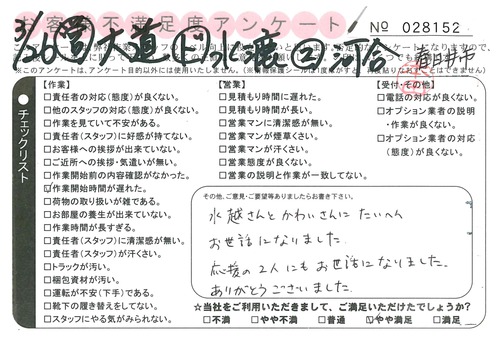 お客様不満足度アンケート
№ 028152
3/26 大道 水 河合 春日井市
※このアンケートは、アンケート目的以外には使用いたしません。
チェックリスト
【作業】
□責任者の対応(態度)が良くない。
□他のスタッフの対応(態度)が良くない。
□作業を見ていて不安がある。
□責任者(スタッフ)に好感が持てない。
□お客様への挨拶が出来ていない。
□ご近所への挨拶・気遣いが無い。
□作業開始前の内容確認がなかった。
□作業開始時間が遅れた。
□荷物の取り扱いが雑である。
□お部屋の養生が出来ていない。
□作業時間が長すぎる。
□責任者(スタッフ)に清潔感が無い。
□責任者(スタッフ)が汗くさい。
□トラックが汚い。
□梱包資材が汚い。
□運転が不安(下手)である。
□靴下の履き替えをしてない。
□スタッフにやる気がみられない。
【営業】
□見積もり時間に遅れた。
□見積もり時間が長い。
□営業マンに清潔感が無い。
□営業マンが煙草くさい。
□営業マンが汗くさい。
□営業態度が良くない。
□営業の説明と作業が一致してない。
【受付・その他】
□電話の対応が良くない。
□オプション業者の説明・作業が良くない。
□オプション業者の対応(態度)が良くない。
その他、ご意見・ご要望等ありましたらお書き下さい。
水越さんとかわいさんにたいへん
お世話になりました
応援の2人にもお世話になりました
ありがとうございました
☆当社をご利用いただきまして、ご満足いただけたでしょうか?
□不満 □やや不満 □普通 ☑やや満足 □満足